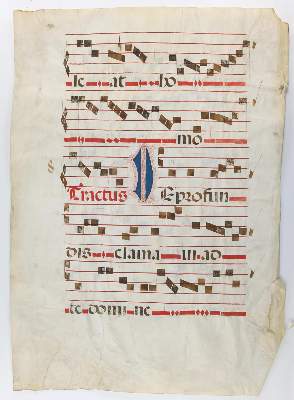 le at ho
mo
Tractus DE profun
dis clama ui ad
te domi ne